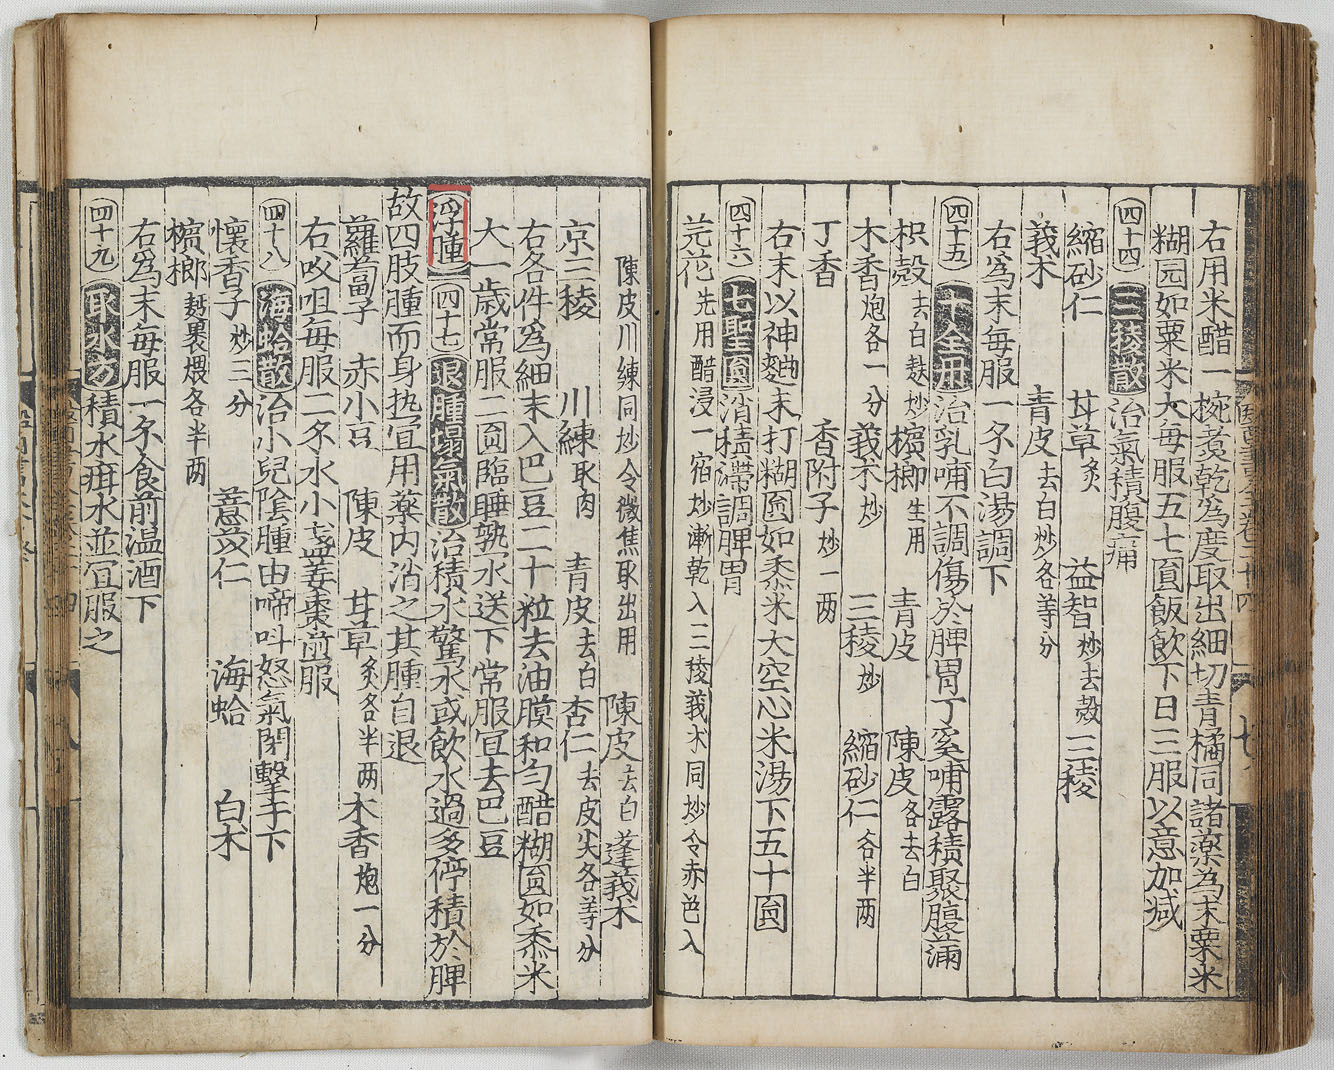 右用米醋一椀煮乾爲度取出細切青橘同諸藥爲末粟米
糊园如粟米大每服五七圎飯飲下日三服以意加減
四十四 三稜散 治氣積腹痛
縮砂仁 甘草炙 益智炒去殼 三稜
莪朮 青皮去白炒各等分
右爲末每服一錢白湯調下
四十五 十全丹 治乳哺不調傷於脾胃丁奚哺露積聚腹滿
枳殼去白麸炒 檳榔生用 青皮 陳皮各去白
木香炮各一分 莪朮炒 三稜炒 縮砂仁各半两
丁香 香附子炒一两
右末以神麯末打糊圎如黍米大空心米湯下五十圎
四十六 七聖圎 消積滯調脾胃
芫花先用醋浸一宿炒漸乾入三稜莪朮同炒令赤色入
陳皮川練同炒令微焦取出用 陳皮去白 蓬莪朮
京三稜 川練取肉 青皮去白 杏仁去皮尖各等分
右各件爲細末入巴豆二十粒去油膜和匀醋糊圎如黍米
大一歲常服二圎臨睡熟水送下常服宜去巴豆
浮腫 四十七 退腫塌氣散 治積水驚水或飲水過多停積於脾
故四肢腫而身热宜用藥内消之其腫自退
蘿蔔子 赤小豆 陳皮 甘草炙各半两 木香炮一分
右㕮咀每服二錢水小盞姜棗煎服
四十八 海蛤散 治小兒陰腫由啼叫怒氣閉擊于下
懷香子炒三分 薏苡仁 海蛤 白朮
檳榔麪裹煨各半两
右爲末每服一錢食前温酒下
四十九 取水方 積水疳水並宜服之